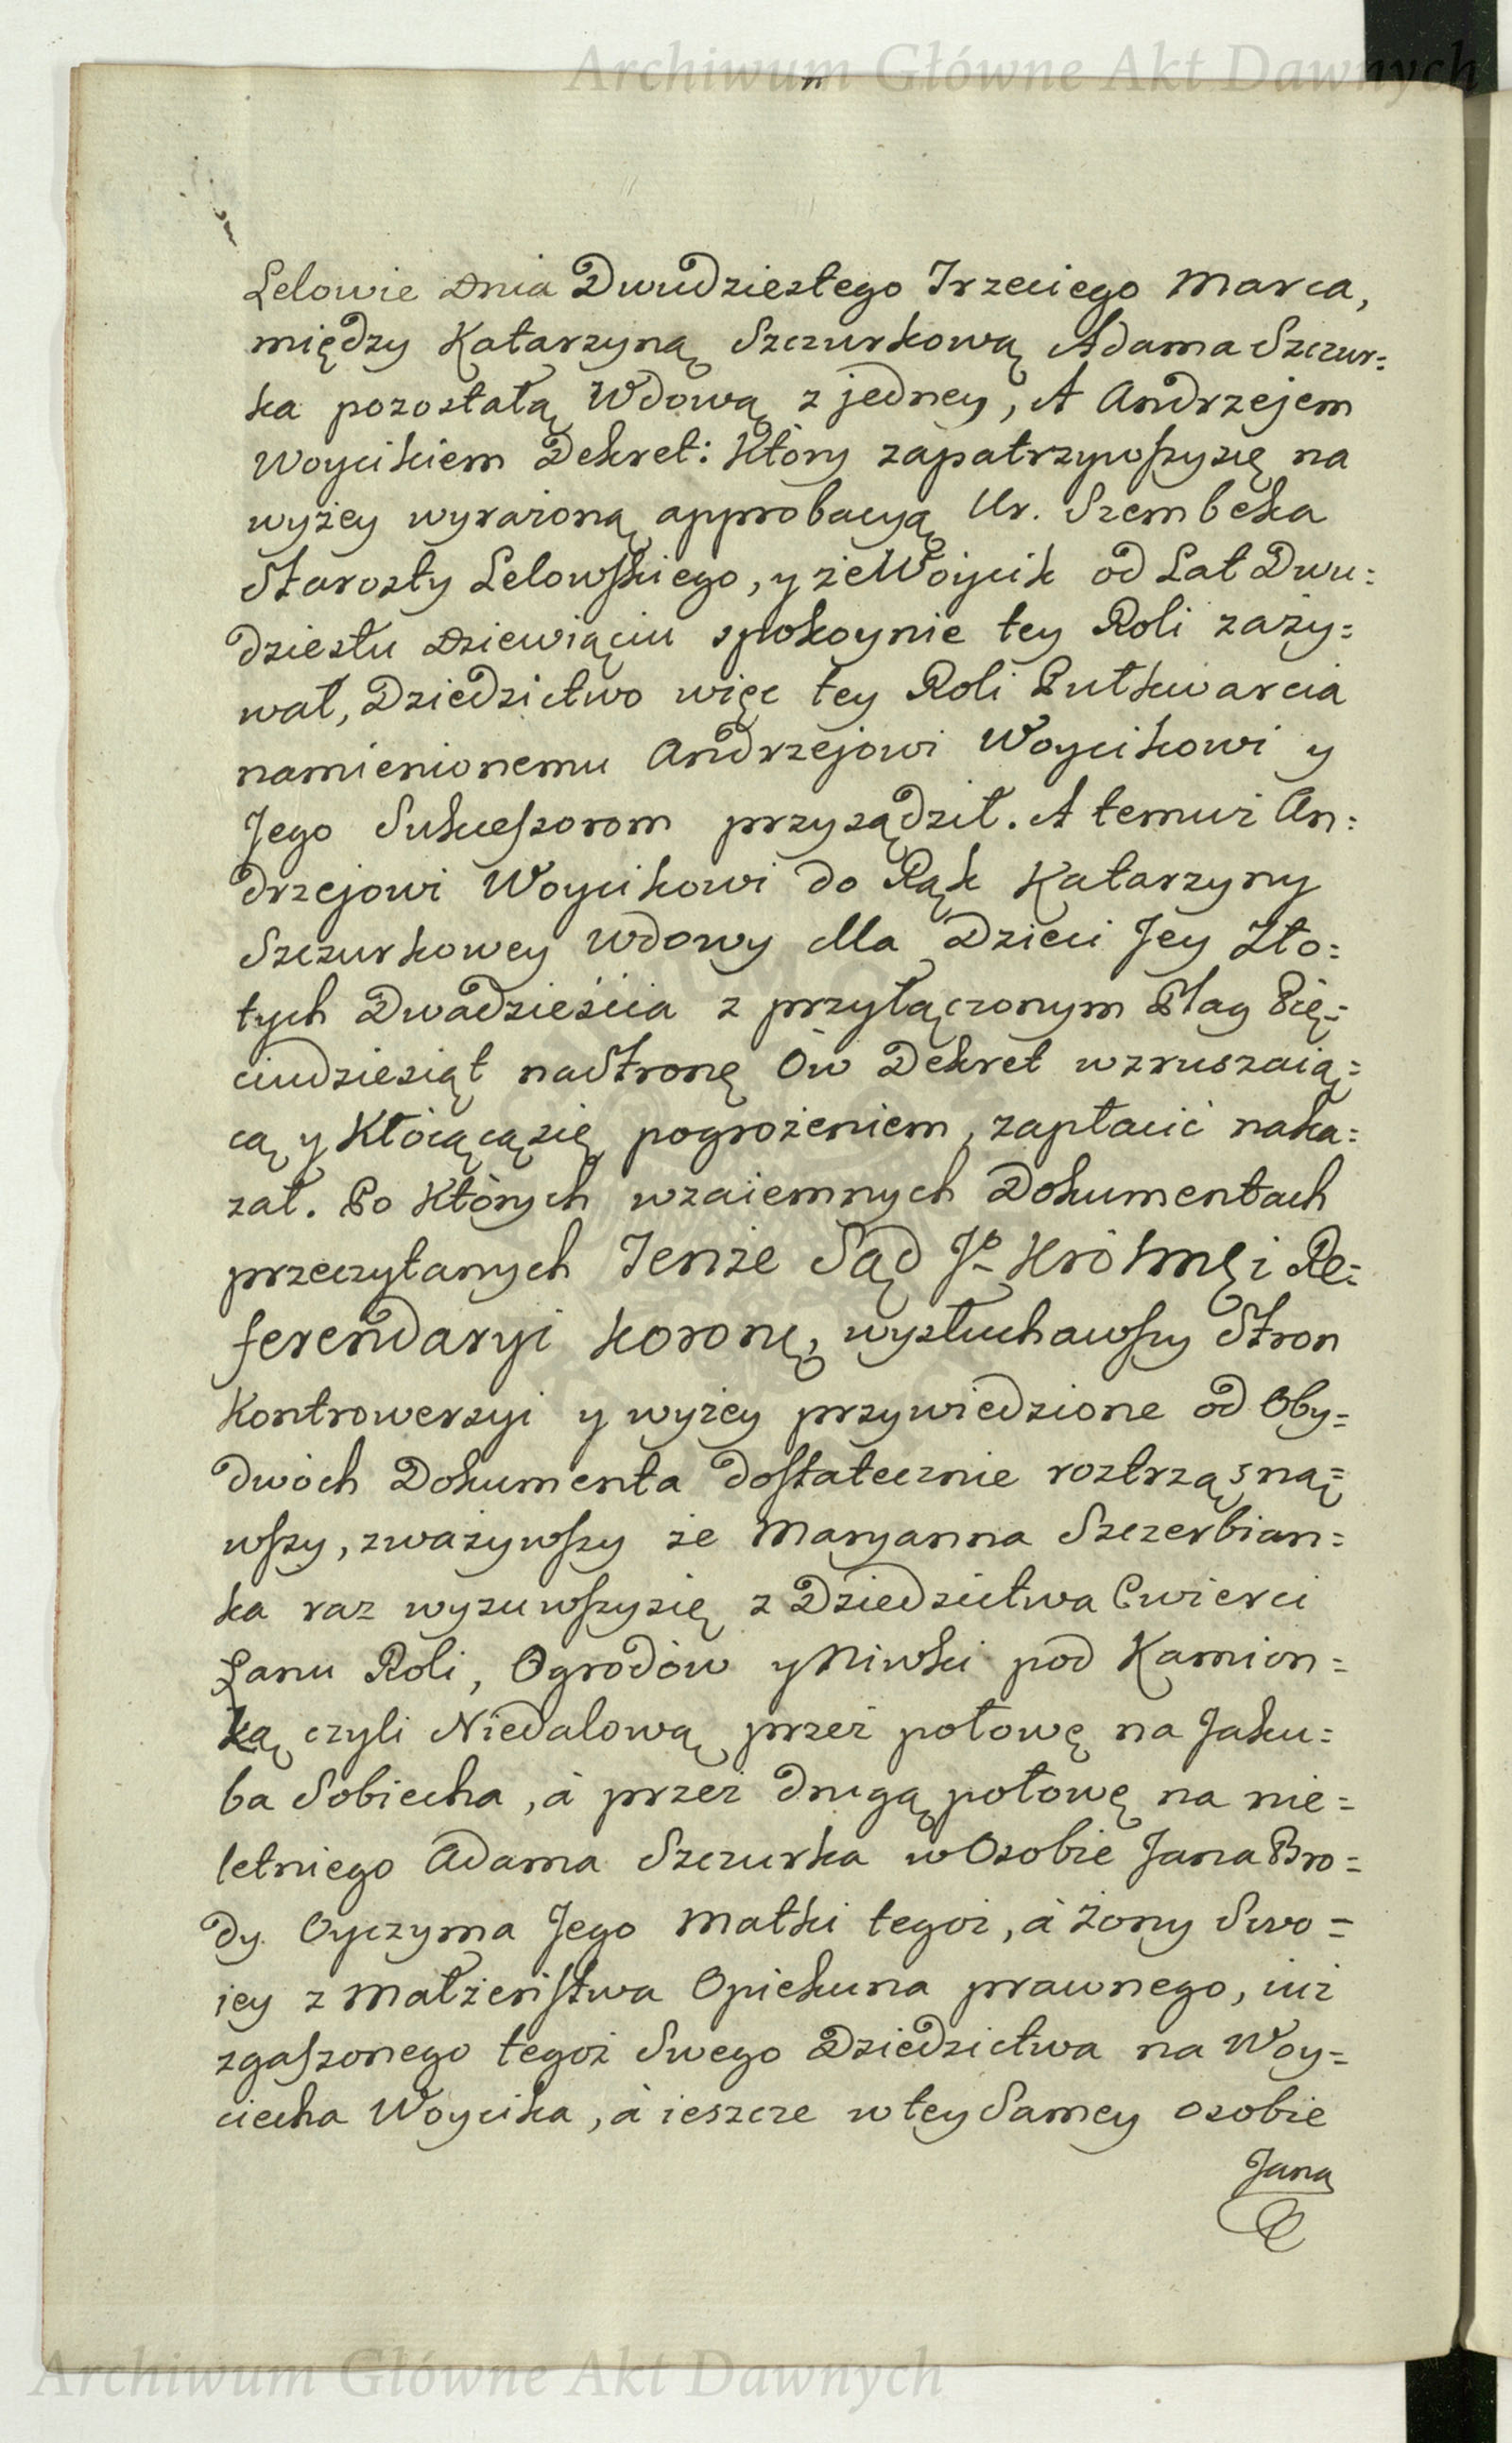 Archiwum Główne Akt Dawnych
Lelowie Dnia Dwudziestego Trzeciego Marca,
między Katarzyną Szczurkową Adama Szczur=
ka pozostałą Wdową z jedney, A Andrzejem
Woycikiem Dekret: Który zapatrzywszysię na
wyżey wyrażoną approbacyą Ur. Szembeka
Starosty Lelowskiego, y że Woycik od Lat Dwu=
dziestu Dziewiąciu spokoynie tey Roli zaży=
wał, Dziedzictwo więc tey Roli Pułkwarcia
namienionemu Andrzejowi Woycikowi y
Jego Sukcessorom przysądził. A temuż An=
drzejowi Woycikowi do Rąk Katarzyny
Szczurkowey Wdowy dla Dzieci Jey Zło=
tych Dwadzieścia z przyłączonym Plag Pię=
ciudziesiąt na Stronę Ów Dekret wzruszaią=
cą y Kłócącąsię pogrożeniem, zapłacić naka=
zał. Po Których wzaiemnych Dokumentach
przeczytanych Tenże Sąd Jo Kró Mę i Re=
ferendaryi Koronę, wysłuchawszy Stron
Kontrowersyi y wyżey przywiedzione od Oby=
dwóch Dokumenta dostatecznie roztrząsną=
wszy, zważywszy że Maryanna Szczerbian=
ka raz wyzuwszysię z Dziedzictwa Cwierci
Łanu Roli, Ogrodów y Niwki pod Kamion=
ką czyli Niedalową przez połowę na Jaku=
ba Sobiecha, à przez drugą połowę na nie=
letniego Adama Szczurka w Osobie Jana Bro=
dy Oyczyma Jego Matki tegoż, à Żony Swo=
iey z Małżeństwa Opiekuna prawnego, iuż
zgaszonego tegoż Swego Dziedzictwa na Woy=
ciecha Woycika, à ieszcze w tey Samey osobie
Jana
Archiwum Główne Akt Dawnych